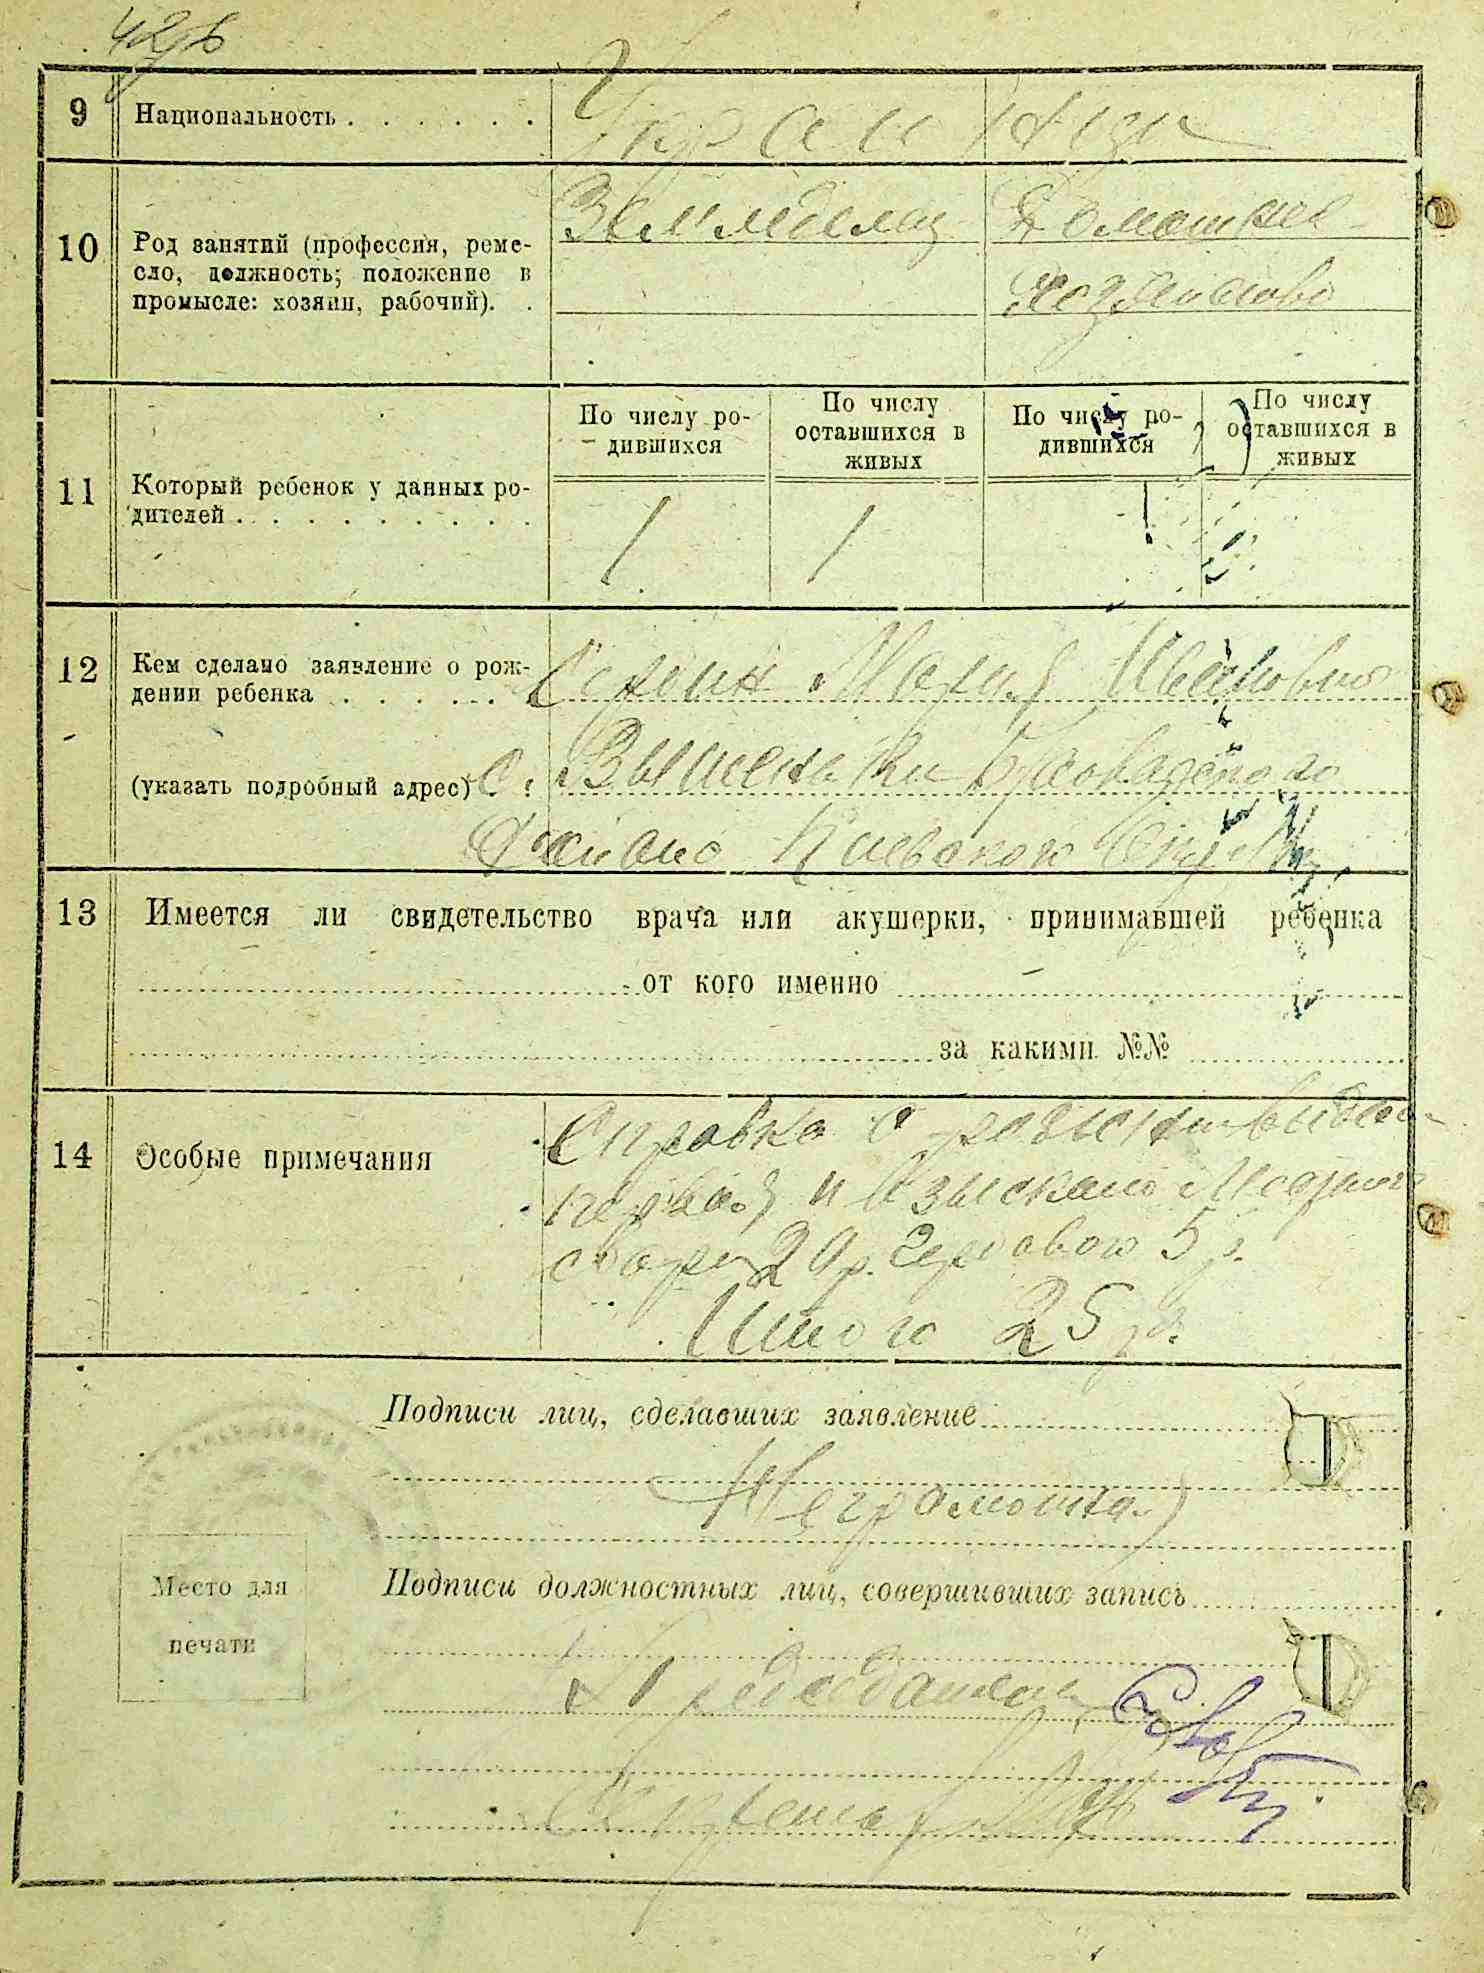 9 Национальность . . . . . . Украинцы
10 Род занятий (профессия, реме-
сло, должность; положение в
промысле: хозяин, рабочий). .
Земледелец
Домашнее
хозяйство
11 Который ребенок у данных ро-
дителей . . . . . . . . .
По числу ро-
дившихся
По числу
оставшихся в
живых
По числу ро-
дившихся
По числу
оставшихся в
живых
1 1 1
12 Кем сделано заявление о рож-
дении ребенка . . . . . . Мария Ивановна
(указать подробный адрес) . . с. Вышеньки
Района Киевского
13 Имеется ли свидетельство врача или акушерки, принимавшей ребенка
от кого именно
за какими №№
14 Особые примечания
Справка о
и взыскано
20 р. 5 р.
Итого 25 р.
Подписи лиц, сделавших заявление
Неграмотная
Место для
печати
Подписи должностных лиц, совершивших запись
Председатель
Секретарь